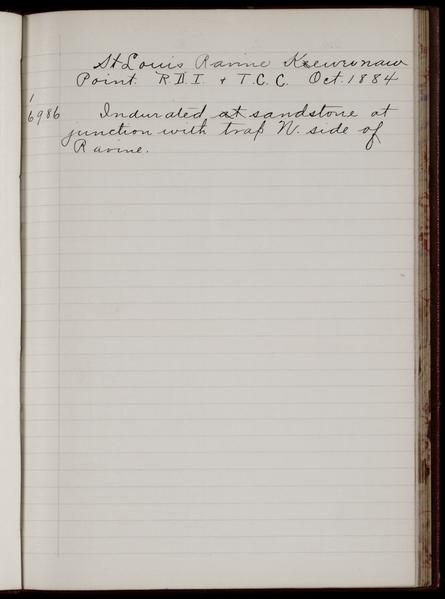 St Louis Ravine Keweenaw
Point. R.D.I. + T.C.C. Oct. 1884
1
6986 Indurated at sandstone at
junction with trap N. side of
Ravine.